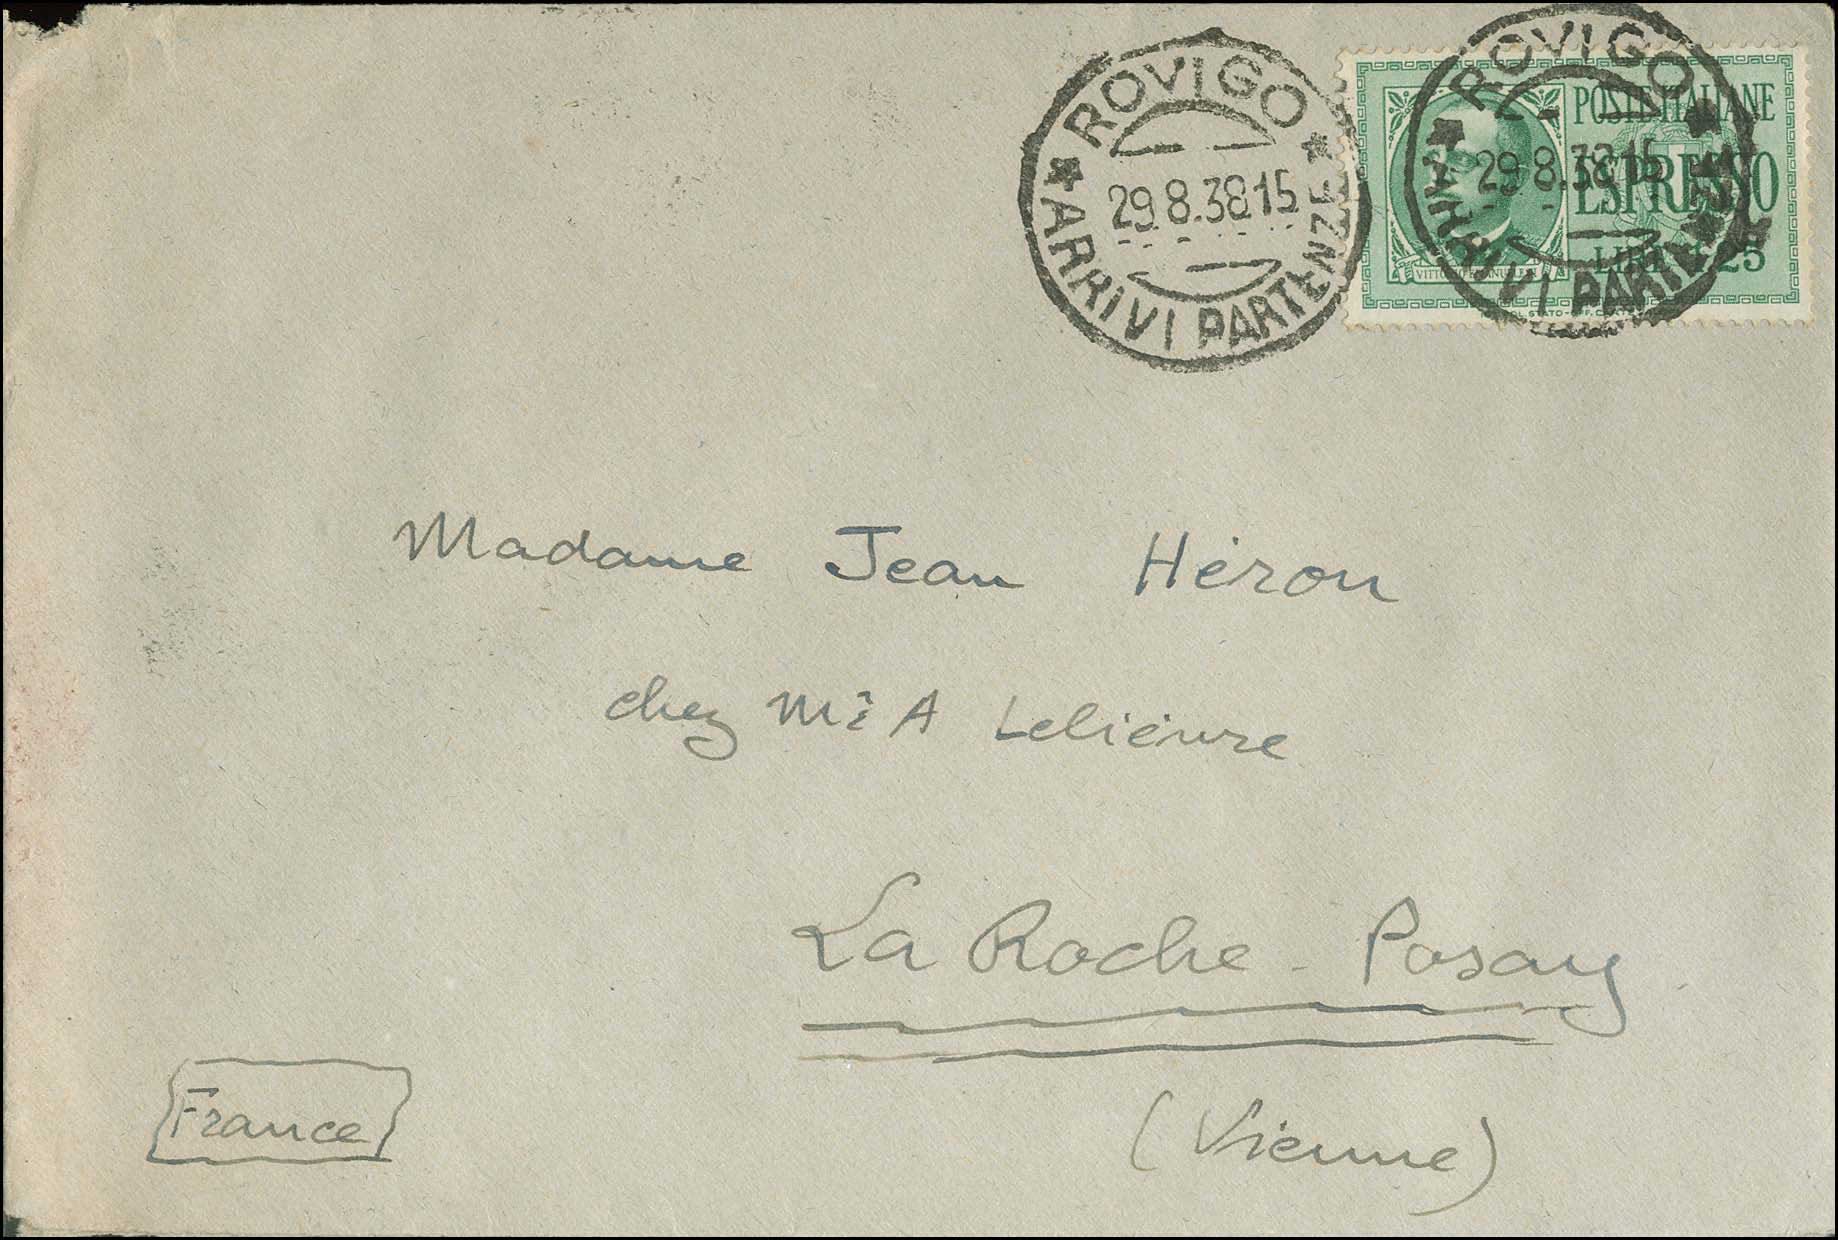 ROVIGO
29.8.38.15
ARRIVI PARTENZE
ROVIGO
29.8.38.15
ARRIVI PARTENZE
POSTE ITALIANE
ESPRESSO
LIRE 1,25
Madame Jean Héron
chez Mr A Lelièvre
La Roche-Posay
(Vienne)
France